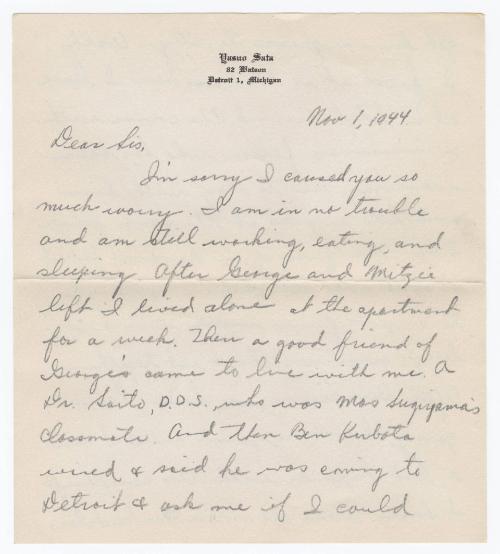 Yasuo Sata
82 Watson
Detroit 1, Michigan
Nov 1, 1944
Dear Sis,
I'm sorry I caused you so
much worry. I am in no trouble
and am still working, eating, and
sleeping. After George and Mitzie
left I lived alone at the apartment
for a week. Then a good friend of
George's came to live with me. A
Dr. Saito, D.D.S., who was Mas Sugiyama's
classmate. And then Ben Kubota
wired & said he was coming to
Detroit & ask me if I could